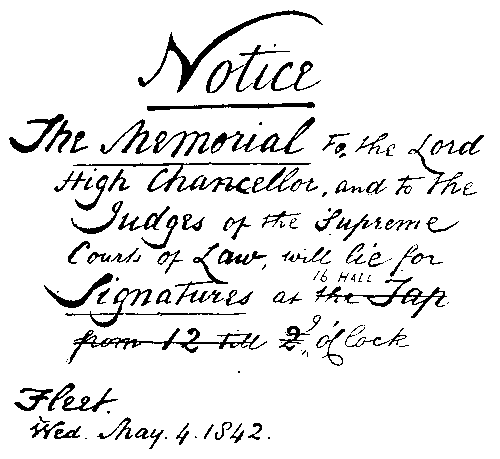 Notice
The Memorial To, the Lord
High Chancellor, and to the
Judges of the Supreme
Courts of Law, will lie for
16 HALL
Signatures at the Tap
from 12 till 2 9 o'Clock
Fleet.
Wed. May. 4. 1842.